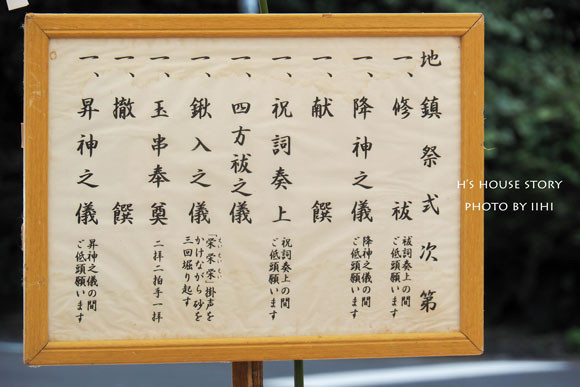 地鎮祭式次第
一、修祓
祓詞奏上の間
ご低頭願います
一、降神之儀
降神之儀の間
ご低頭願います
一、献饌
一、祝詞奏上
祝詞奏上の間
ご低頭願います
一、四方祓之儀
一、鍬入之儀
「栄、栄、栄」掛声を
かけながら砂を
三回堀り起す
一、玉串奉奠
二拝二拍手一拝
一、撤饌
一、昇神之儀
昇神之儀の間
ご低頭願います
H'S HOUSE STORY
PHOTO BY IIHI